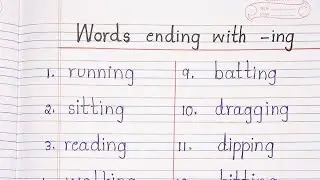 Words ending with -ing
1. running
2. sitting
3. reading
9. batting
10. dragging
11. dipping